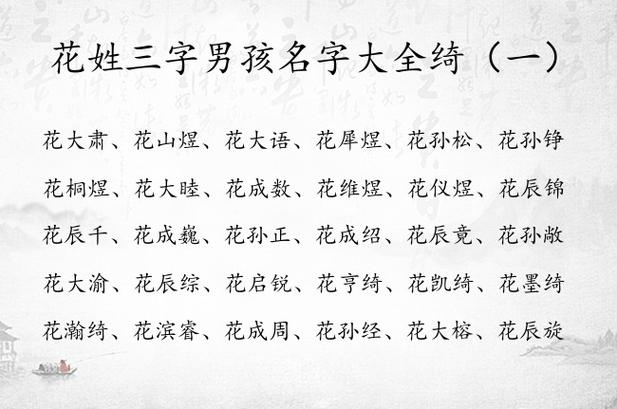 花姓三字男孩名字大全绮（一）
花大肃、花山煜、花大语、花犀煜、花孙松、花孙铮
花桐煜、花大睦、花成数、花维煜、花仪煜、花辰锦
花辰千、花成巍、花孙正、花成绍、花辰竟、花孙敞
花大渝、花辰综、花启锐、花亨绮、花凯绮、花墨绮
花瀚绮、花滨睿、花成周、花孙经、花大榕、花辰旋